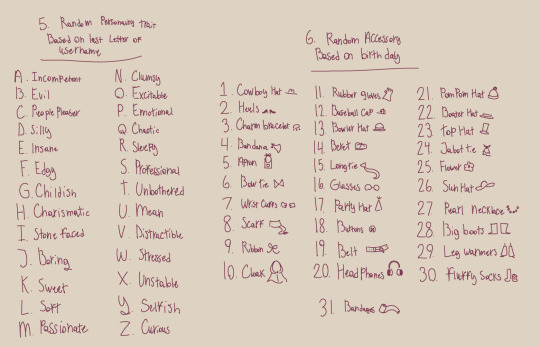 5. Random Personality trait
Based on last Letter of
username
A. Incompetent
B. Evil
C. People Pleaser
D. Silly
E. Insane
F. Edgy
G. Childish
H. Charismatic
I. Stone faced
J. Boring
K. Sweet
L. Soft
M. Passionate
N. Clumsy
O. Excitable
P. Emotional
Q. Chaotic
R. Sleepy
S. Professional
T. Unbothered
U. Mean
V. Distractible
W. Stressed
X. Unstable
Y. Selfish
Z. Curious
6. Random Accessory
Based on birthday
1. Cowboy Hat
2. Heels
3. Charm bracelet
4. Bandana
5. Apron
6. Bow tie
7. Wrist Cuffs
8. Scarf
9. Ribbon
10. Cloak
11. Rubber gloves
12. Baseball Cap
13. Bowler Hat
14. Beret
15. Long tie
16. Glasses
17. Party Hat
18. Buttons
19. Belt
20. Headphones
21. PomPom Hat
22. Boater Hat
23. top Hat
24. Jabot tie
25. Flower
26. Sun Hat
27 Pearl necklace
28 Big boots
29. Leg warmers
30. Fluffy Socks
31. Bandages